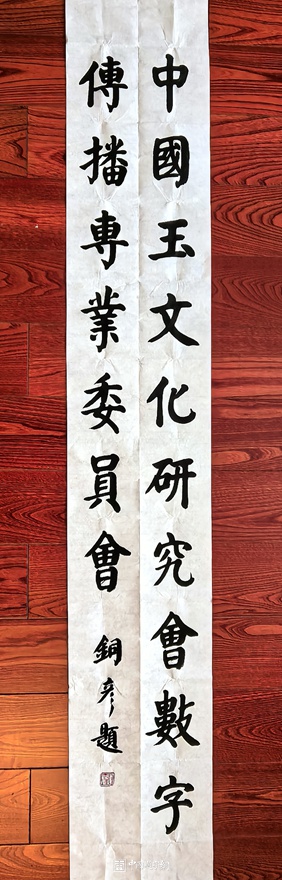 中國玉文化研究會數字
傳播專業委員會
銅彦題